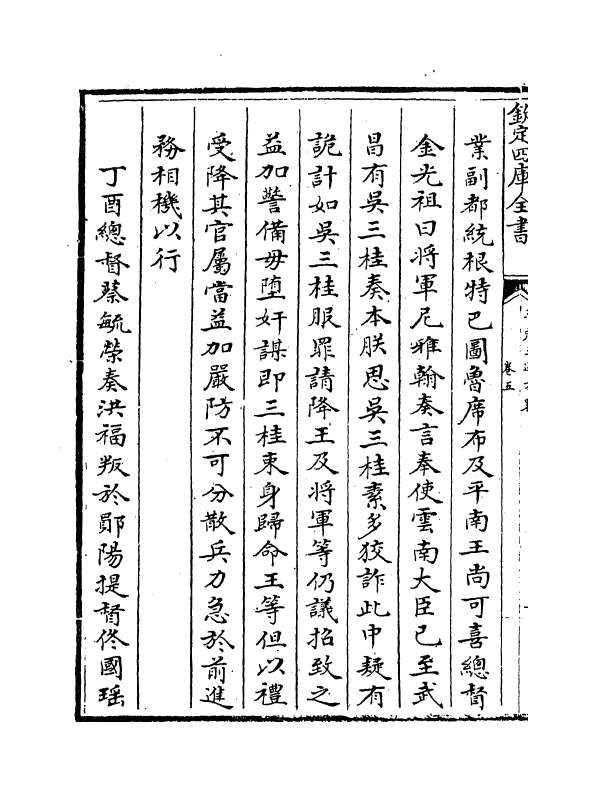 欽定四庫全書
卷五
業副都統根特巴圖魯席布及平南王尚可喜總督
金光祖曰將軍尼雅翰奏言奉使雲南大臣已至武
昌有吳三桂奏本朕思吳三桂素多狡詐此中疑有
詭計如吳三桂服罪請降王及將軍等仍議招致之
益加警備毋堕奸謀即三桂束身歸命王等但以禮
受降其官屬當益加嚴防不可分散兵力急於前進
務相機以行
丁酉總督蔡毓榮奏洪福叛於鄖陽提督佟國瑶